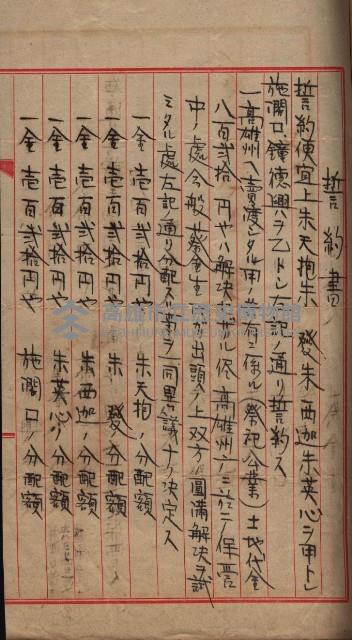 誓約書
誓約便宜上朱天抱朱 發朱西伽朱英心ヲ甲トシ
施闊口、鐘德興ヲ乙トシ左記ノ通リ誓約ス
一高雄州ヘ賣渡シタル甲 係ル(祭祀公業)土地代金
八百貳拾 円也ハ解決 ザル 侭高雄州 ニ於テ保管
中ノ處今般蔡金 出頭ノ上双方 圓滿解決ヲ試
ミタル處左記ノ通リ分配スル事ヲ一同異議ナク決定ス
一金壱百貳拾円也 朱天抱ノ分配額
一金壱百貳拾円也 朱 發ノ分配額
一金壱百貳拾円也 朱西伽ノ分配額
一金壱百貳拾円也 朱英心ノ分配額
一金壱百貳拾円也 施闊口ノ分配額
高雄市立歷史博物館